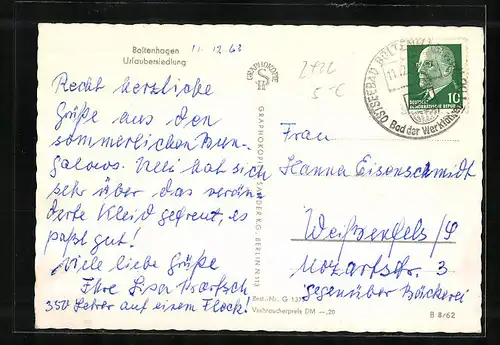 Boltenhagen
Urlaubersiedlung
11. 12. 63
Recht herzliche
Grüße aus den
sommerlichen Bun-
galows. Uelli hat sich
sehr über das verän
derte Kleid gefreut, es
paßt gut!
Viele liebe Grüße
Ihre Lisa
350 Lehrer auf einem Fleck!
GRAPHOKOPIE
GRAPHOKOPIE H. SANDER KG. BERLIN N 113
Best.-Nr. G
Verbraucherpreis DM —,20
5 €
OSTSEEBAD BOLTENHAGEN
Bad der Werktätigen
DEUTSCHE
DEMOKRATISCHE REPUBLIK
10
Frau
Hanna Eisenschmidt
Weißenfels/S
Mozartstr. 3
gegenüber Bäckerei
B 8/62